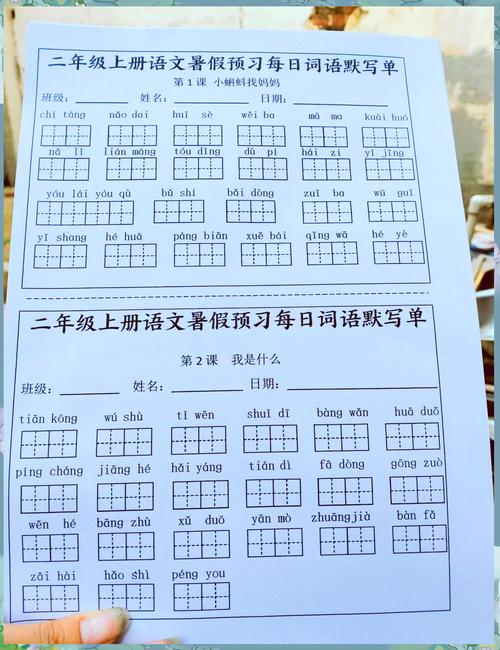 二年级上册语文暑假预习每日词语默写单
第 1 课 小蝌蚪找妈妈
班级：________ 姓名：________ 日期：________
chí táng nǎo dai huī sè wěi ba mā ma kuài huó
nǎ lǐ lián máng tóu dǐng dù pí hái zi yǐ jīng
yóu lái yóu qù bǔ shí bǎi dòng zuǐ ba wū guī
yī shang hé huā páng biān xuě bái qīng wā hé yè
二年级上册语文暑假预习每日词语默写单
第 2 课 我是什么
班级：________ 姓名：________ 日期：________
tiān kōng wú shù tǐ wēn shuǐ dī bàng wǎn huā duǒ
píng cháng jiāng hé hǎi yáng tián dì fā dòng gōng zuò
wēn hé bāng zhù xǔ duō yān mò zhuāngjià bàn fǎ
zāi hài hǎo shì péng you